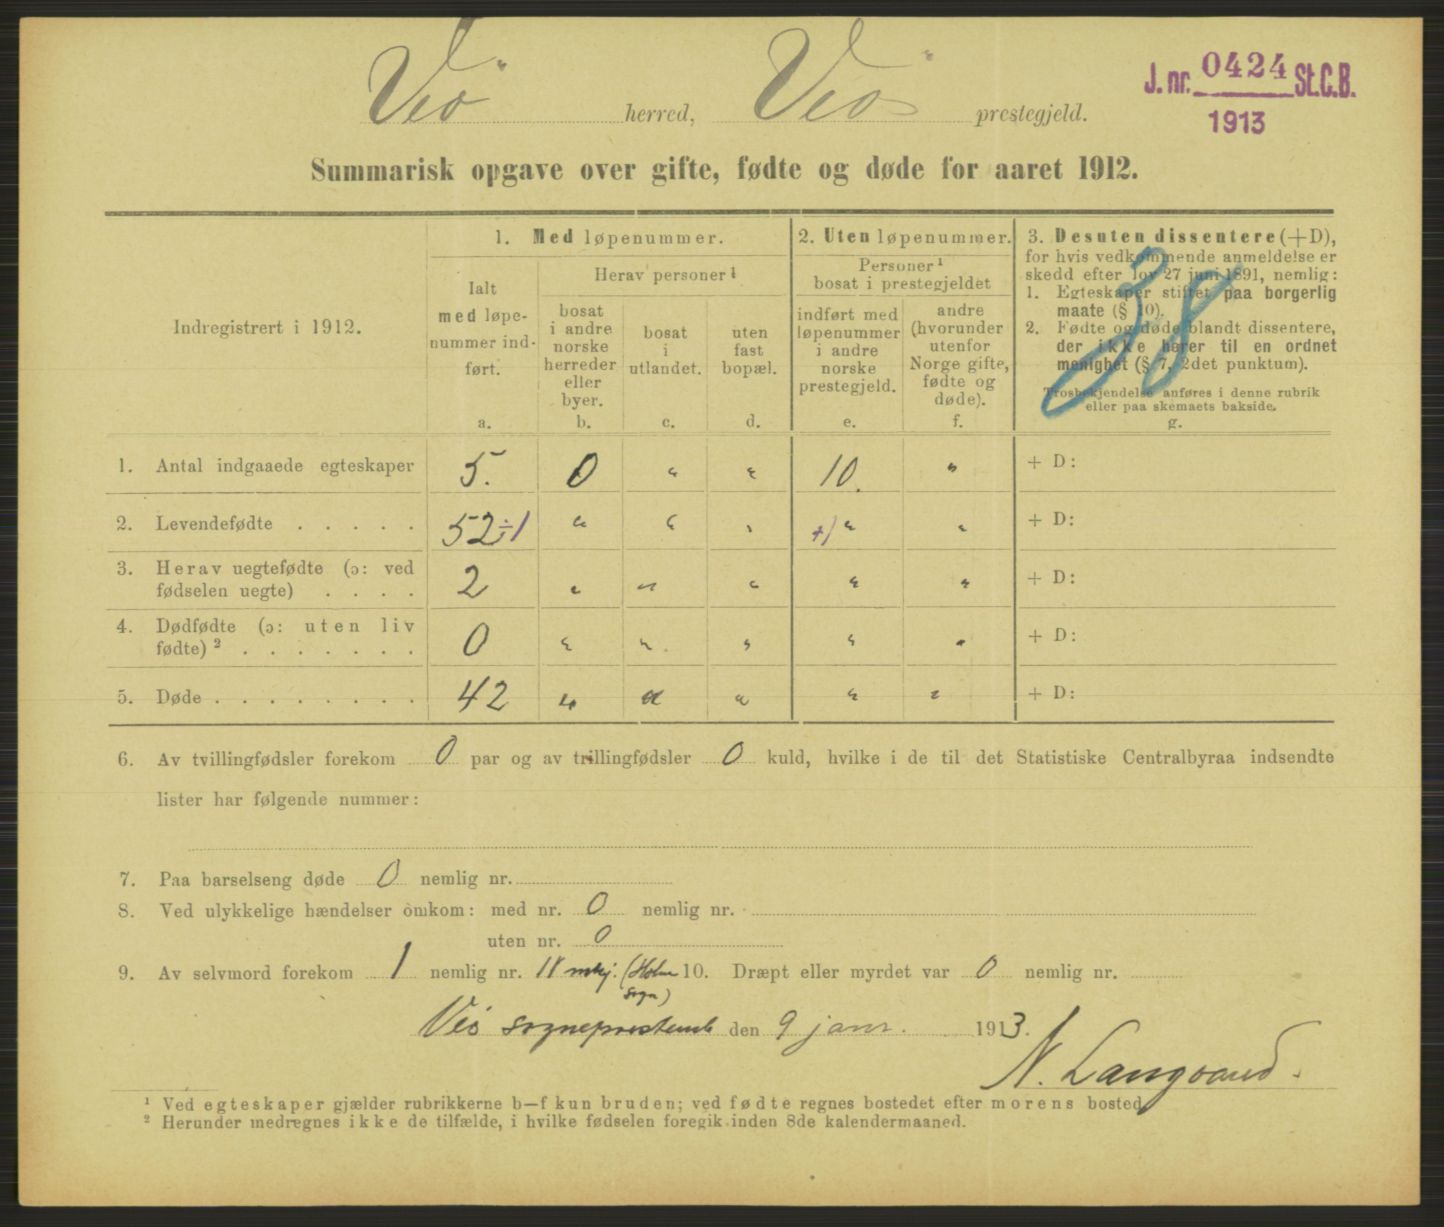 Veö herred, Veö prestegjeld.
J. nr. 0424 St.C.B.
1913
Summarisk opgave over gifte, fødte og døde for aaret 1912.
Indregistrert i 1912.
1. Med løpenummer.
Ialt
med løpe-
nummer ind-
ført.
a.
Herav personer¹
bosat
i andre
norske
herreder
eller
byer.
b.
bosat
i
utlandet.
c.
uten
fast
bopæl.
d.
2. Uten løpenummer.
Personer¹
bosat i prestegjeldet
indført med
løpenummer
i andre
norske
prestegjeld.
e.
andre
(hvorunder
utenfor
Norge gifte,
fødte og
døde).
f.
3. Desuten dissentere (+D),
for hvis vedkommende anmeldelse er
skedd efter lov 27 juni 1891, nemlig:
1. Egteskaper stiftet paa borgerlig
maate (§ 10).
2. Fødte og døde blandt dissentere,
der ikke hører til en ordnet
menighet (§ 7, 2det punktum).
Trosbekjendelse anføres i denne rubrik
eller paa skemaets bakside.
g.
38
1. Antal indgaaede egteskaper 5. 0 " " 10. " + D:
2. Levendefødte . . . . . 52÷1 " " " +1 " " + D:
3. Herav uegtefødte (ɔ: ved
fødselen uegte) . . . . 2 " " " " " + D:
4. Dødfødte (ɔ: uten liv
fødte)² . . . . . . . 0 " " " " " + D:
5. Døde . . . . . . . . 42 " " " " " + D:
6. Av tvillingfødsler forekom 0 par og av trillingfødsler 0 kuld, hvilke i de til det Statistiske Centralbyraa indsendte
lister har følgende nummer:
7. Paa barselseng døde 0 nemlig nr.
8. Ved ulykkelige hændelser omkom: med nr. 0 nemlig nr.
uten nr. 0
9. Av selvmord forekom 1 nemlig nr. 18 mkj. (Holm 10. Dræpt eller myrdet var 0 nemlig nr.
sogn)
Veö sogneprestemb den 9 janr. 1913.
N. Langaard.
¹ Ved egteskaper gjælder rubrikkerne b—f kun bruden; ved fødte regnes bostedet efter morens bosted.
² Herunder medregnes ikke de tilfælde, i hvilke fødselen foregik inden 8de kalendermaaned.